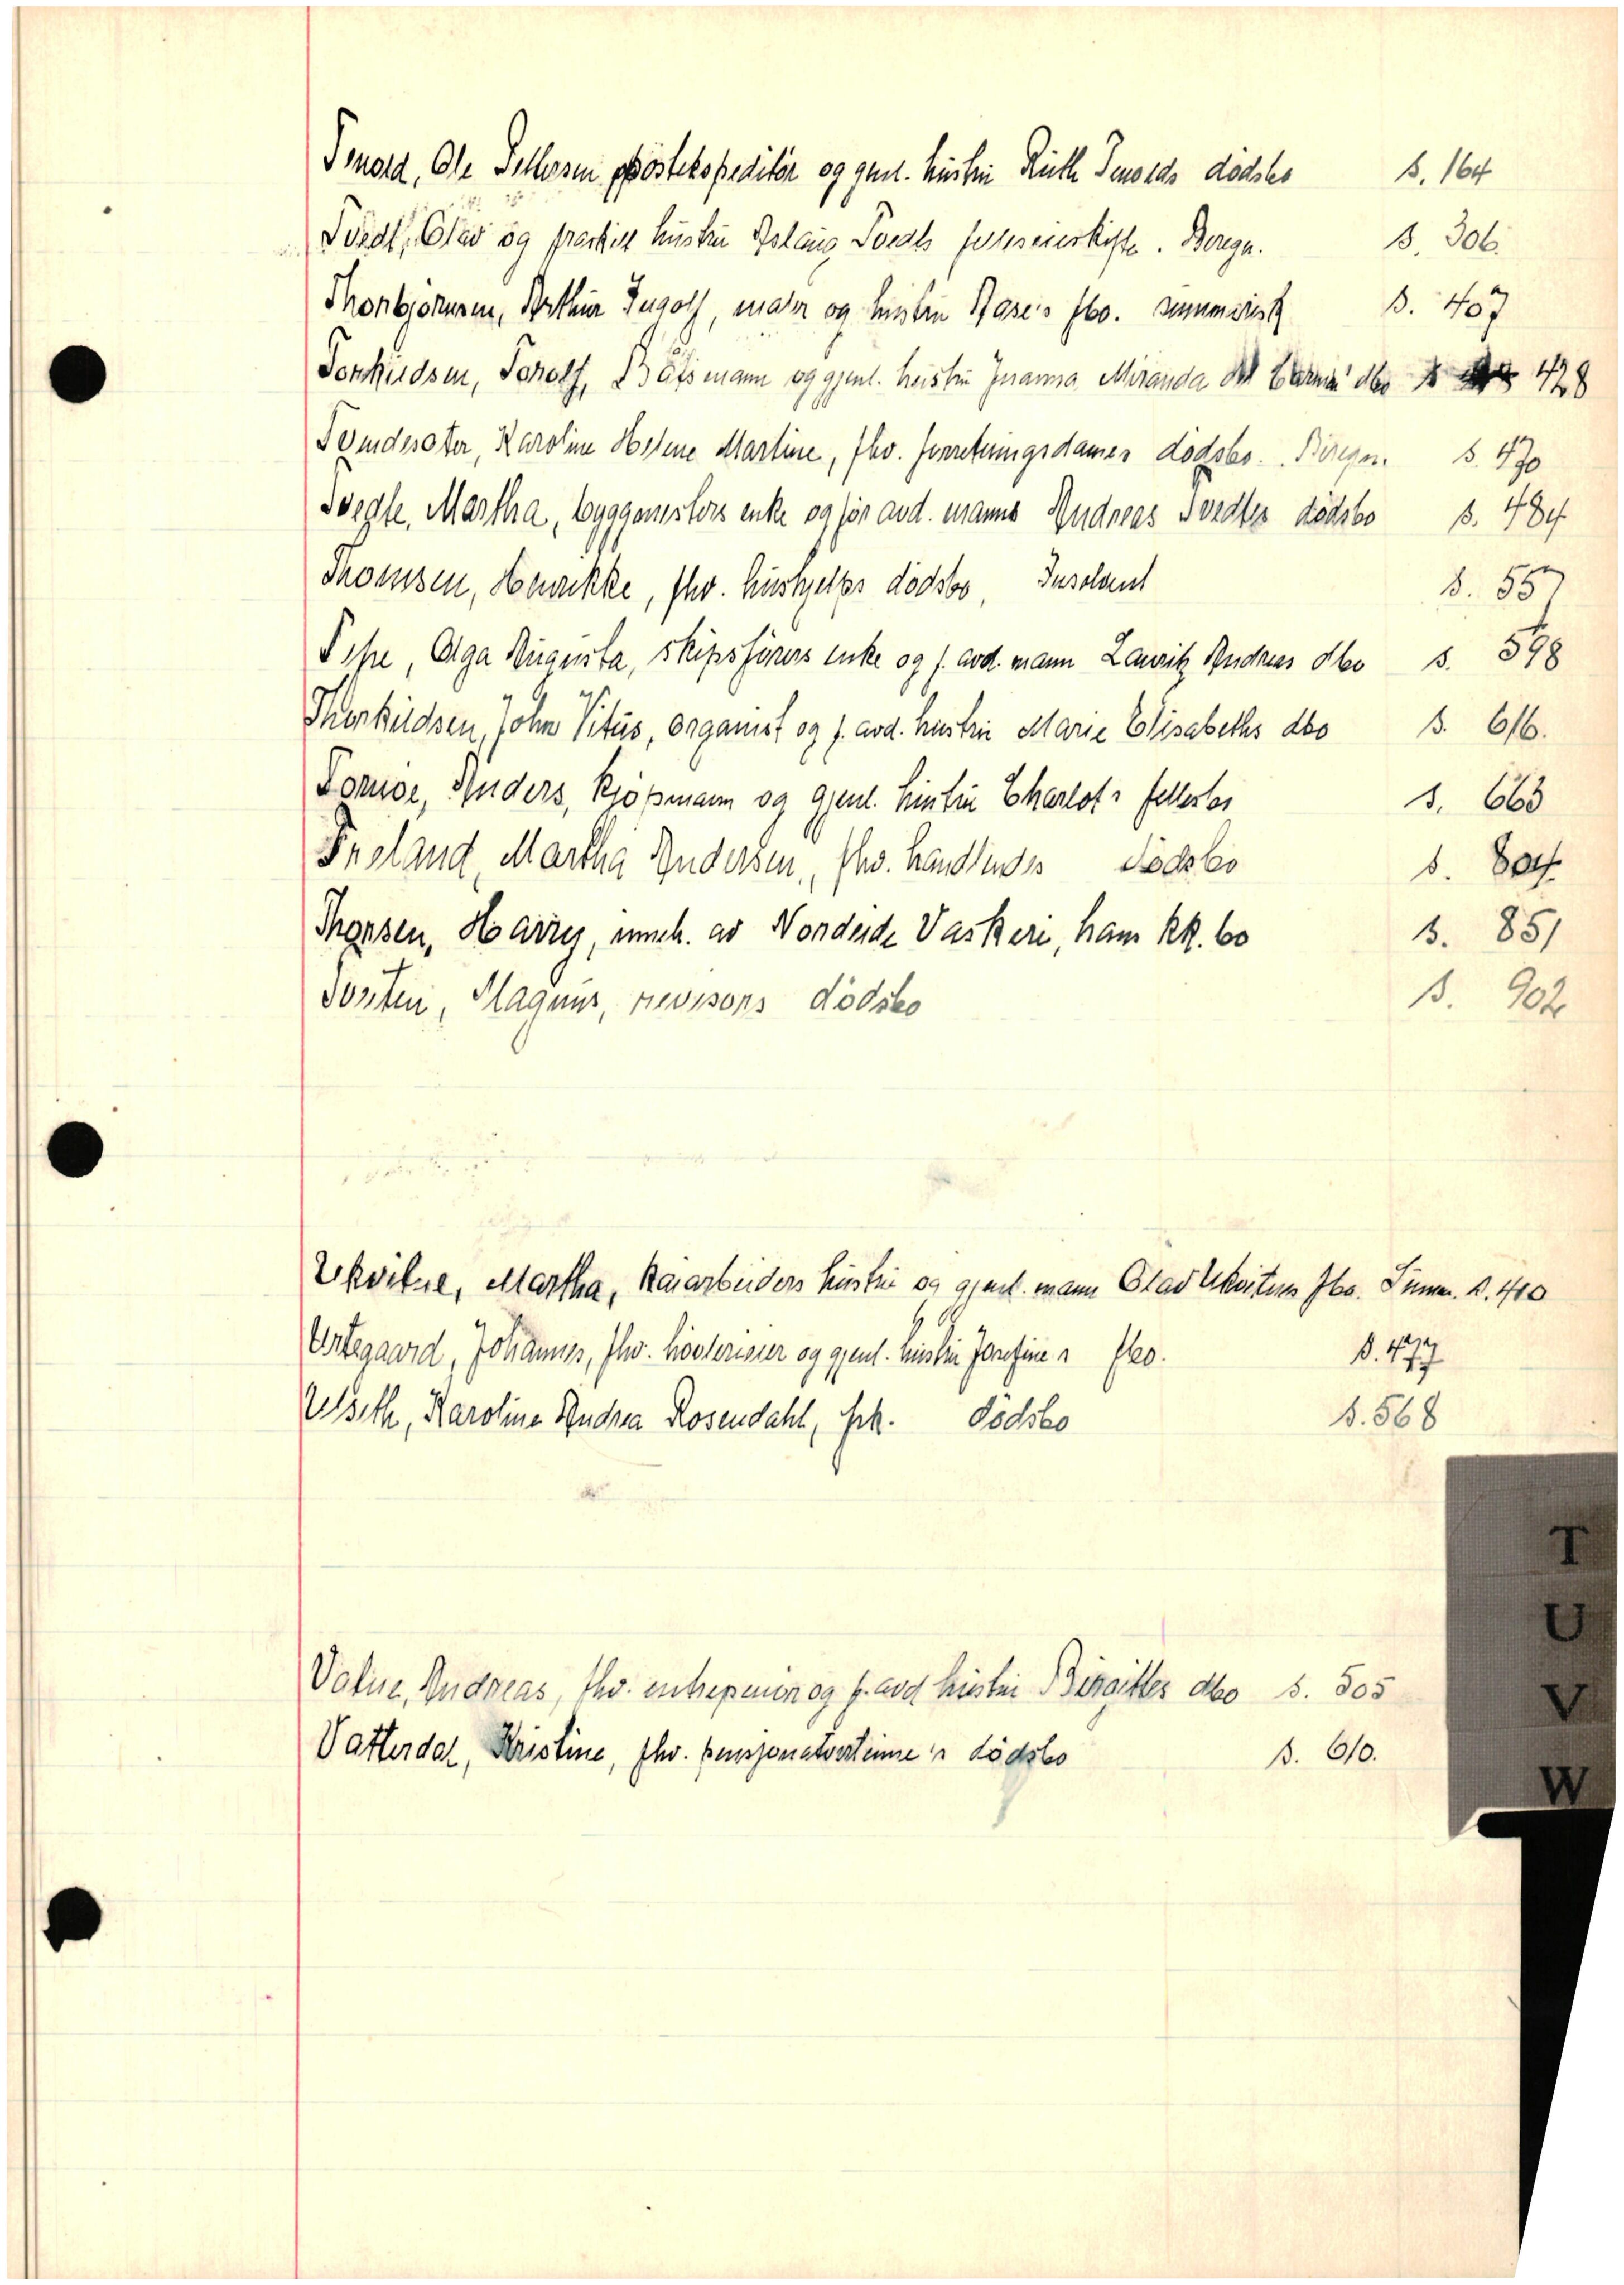 Tenold, Ole Tellefsen postekspeditör og gjenl. hustru Ruth Tenolds dödsbo s. 164
Tvedt, Olav og fraskilt hustru Aslaug Tvedts felleseieskifte. Beregn. s. 306.
Thorbjörnsen, Arthur Ingolf, maler og hustru Aase's fbo. summarisk s. 407
Torkildsen, Torolf, Båtsmann og gjenl. hustru Juanna Miranda del Carmen dbo s 428
Karoline Helene Martine, fhv. forretningsdames dödsbo. Beregn. s. 470
Tvedte, Martha, byggmesters enke og för avd. manns Andreas Tvedtes dödsbo s. 484
Thomsen, Henrikke, fhv. hushjelps dödsbo, Insolvent s. 557
Olga Augusta, skipsförers enke og f. avd. mann Lauritz Andreas dbo s. 598
Thorkildsen, John Vitus, organist og f. avd. hustru Marie Elisabeths dbo s. 616.
Tornöe, Anders, kjöpmann og gjenl. hustru Charlot's fellesbo s. 663
Treland, Martha Andersen, fhv. handlendes dödsbo s. 804
Thorsen, Harry, inneh. av Nordeide Vaskeri, hans kk. bo s. 851
Torsten, Magnus, revisors dödsbo s. 902
Ukvitne, Martha, kaiarbeiders hustru og gjenl. mann Olav Ukvitnes fbo. Summ. s. 410
Urtegaard, Johannes, fhv. og gjenl. hustru Josefine's fbo. s. 477
Ulseth, Karoline Andrea Rosendahl, frk. dödsbo s. 568
Valne, Andreas, fhv. entreprenör og f. avd hustru Birgittes dbo s. 505
Vatterdal, Kristine, fhv. pensjonatvertinne's dödsbo s. 610.
T
U
V
W